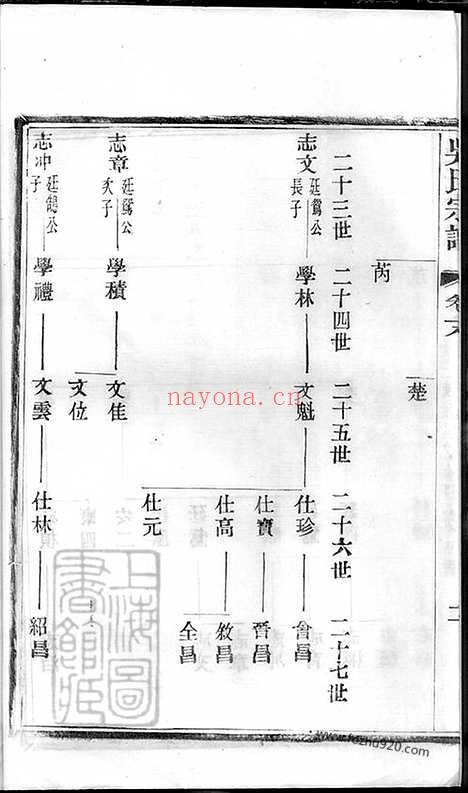 吳氏宗譜
卷六
二
楚
芮
二十三世
二十四世
二十五世
二十六世
二十七世
志文
廷鴛公
長子
學林
文魁
仕珍
會昌
仕寶
晉昌
仕高
敘昌
全昌
仕元
志章
廷鴛公
次子
學積
文佳
文位
志冲
廷鵠公
子
學禮
文雲
仕林
紹昌
nayona.cn
上海圖書館藏
fozhu920.com